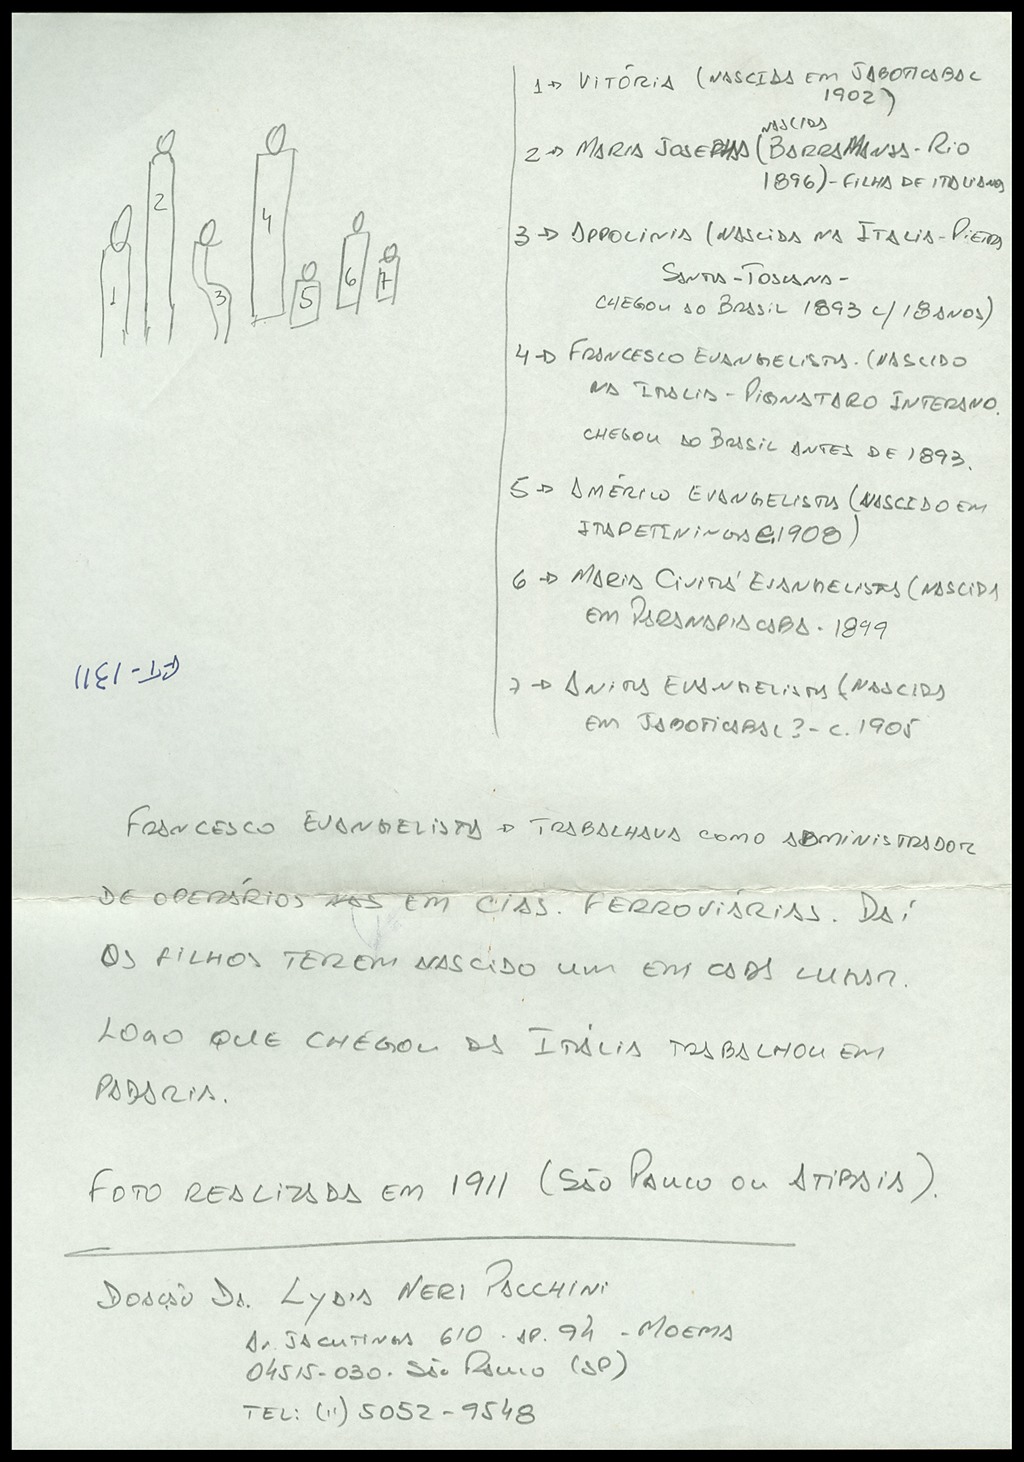 1→ VITÓRIA (NASCIDA EM JABOTICABAL
1902)
NASCIDA
2→ MARIA JOSEPHA (BARRA MANSA - RIO
1896) - FILHA DE ITALIANOS
3→ APPOLINIA (NASCIDA NA ITALIA - PIETRA
SANTA - TOSCANA -
CHEGOU AO BRASIL 1893 C/ 18 ANOS)
4→ FRANCESCO EVANGELISTA. (NASCIDO
NA ITALIA - PIGNATARO INTERANO.
CHEGOU AO BRASIL ANTES DE 1893.
5→ AMÉRICO EVANGELISTA (NASCIDO EM
ITAPETININGA C.1908)
6→ MARIA CIVITA' EVANGELISTA (NASCIDA
EM PARANAPIACABA - 1899
7→ ANITA EVANGELISTA (NASCIDA
EM JABOTICABAL? - C. 1905
1
2
3
4
5
6
7
FT-1311
FRANCESCO EVANGELISTA → TRABALHAVA COMO ADMINISTRADOR
DE OPERÁRIOS NAS EM CIAS. FERROVIÁRIAS. DAÍ
OS FILHOS TEREM NASCIDO UM EM CADA LUGAR.
LOGO QUE CHEGOU DA ITÁLIA TRABALHOU EM
PADARIA.
FOTO REALIZADA EM 1911 (SÃO PAULO OU ATIBAIA).
DOAÇÃO DA. LYDIA NERI PACCHINI
AV. JACUTINGA 610 - AP. 94 - MOEMA
04515-030. SÃO PAULO (SP)
TEL: (11) 5052-9548